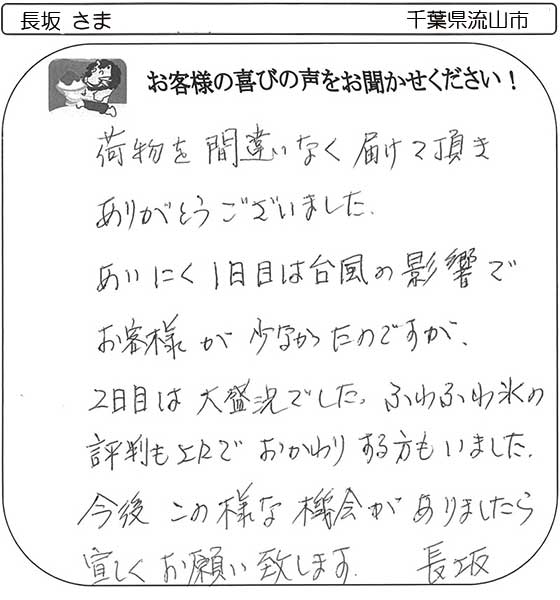 長坂 さま 千葉県流山市
お客様の喜びの声をお聞かせください！
荷物を間違いなく届けて頂き
ありがとうございました。
あいにく1日目は台風の影響で
お客様が少なかったのですが、
2日目は大盛況でした。ふわふわ氷の
評判も上々でおかわりする方もいました。
今後この様な機会がありましたら
宜しくお願い致します。 長坂